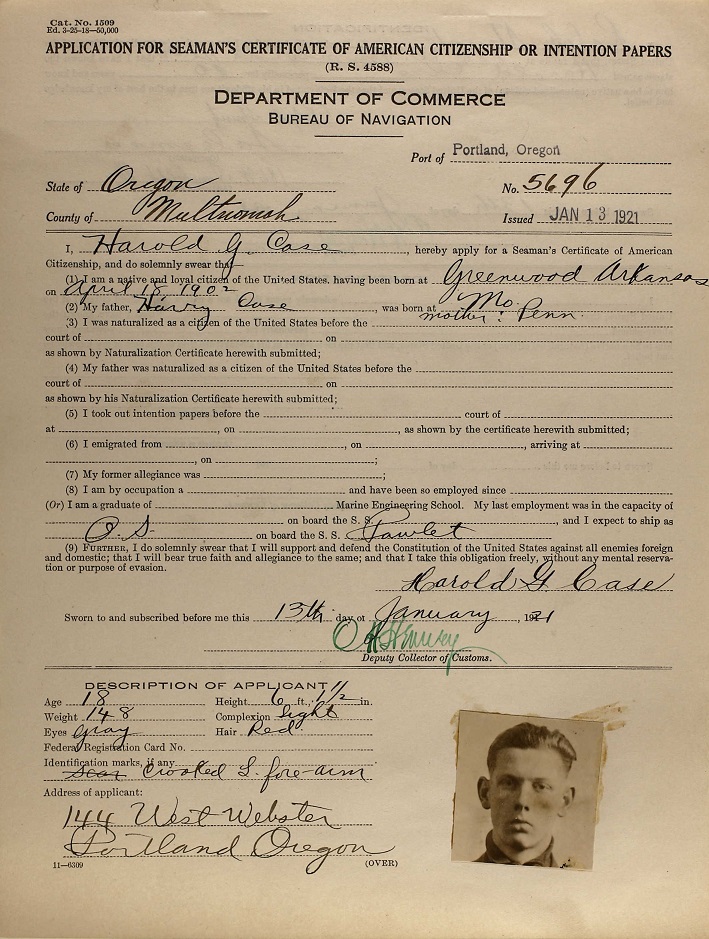 Cat. No. 1509
Ed. 3-25-18—50,000
APPLICATION FOR SEAMAN'S CERTIFICATE OF AMERICAN CITIZENSHIP OR INTENTION PAPERS
(R. S. 4588)
DEPARTMENT OF COMMERCE
BUREAU OF NAVIGATION
Port of Portland, Oregon
State of Oregon No. 5696
County of Multnomah Issued JAN 13 1921
I, Harold G. Case, hereby apply for a Seaman's Certificate of American
Citizenship, and do solemnly swear that—
(1) I am a native and loyal citizen of the United States, having been born at Greenwood Arkansas
on April 18 1902
(2) My father, Harvy Case, was born at Mo.
mother: Penn.
(3) I was naturalized as a citizen of the United States before the
court of on
as shown by Naturalization Certificate herewith submitted;
(4) My father was naturalized as a citizen of the United States before the
court of on
as shown by his Naturalization Certificate herewith submitted;
(5) I took out intention papers before the court of
at , on , as shown by the certificate herewith submitted;
(6) I emigrated from , on , arriving at
, on ;
(7) My former allegiance was ;
(8) I am by occupation a and have been so employed since
(Or) I am a graduate of Marine Engineering School. My last employment was in the capacity of
on board the S. S. , and I expect to ship as
O. S. on board the S. S. Pawlet
(9) FURTHER, I do solemnly swear that I will support and defend the Constitution of the United States against all enemies foreign
and domestic; that I will bear true faith and allegiance to the same; and that I take this obligation freely, without any mental reserva-
tion or purpose of evasion.
Harold G. Case
Sworn to and subscribed before me this 13th day of January, 1921
Deputy Collector of Customs.
DESCRIPTION OF APPLICANT
Age 18 Height 6 ft. 1 1/2 in.
Weight 148 Complexion Light
Eyes Gray Hair Red
Federal Registration Card No.
Identification marks, if any
scar Crooked L. fore-arm
Address of applicant:
144 West Webster
Portland Oregon
11—6309 (OVER)